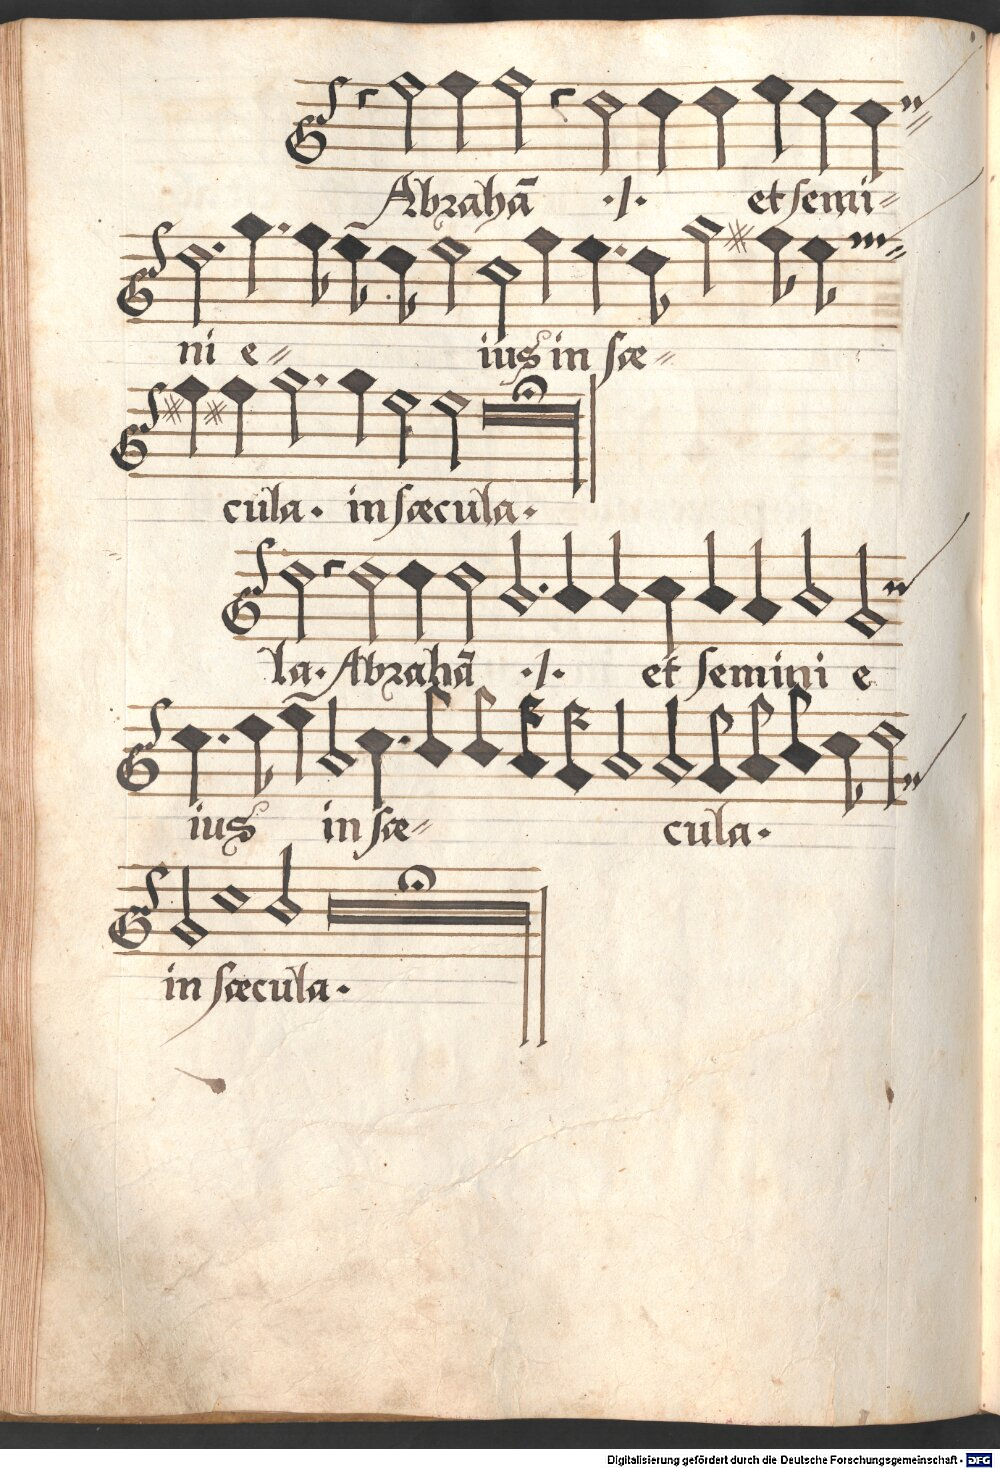 Abrahā ·/· et semi=
ni e= ius in sæ=
cula· in sæcula·
la· Abrahā ·/· et semini e
ius in sæ= cula·
in sæcula·
Digitalisierung gefördert durch die Deutsche Forschungsgemeinschaft - DFG